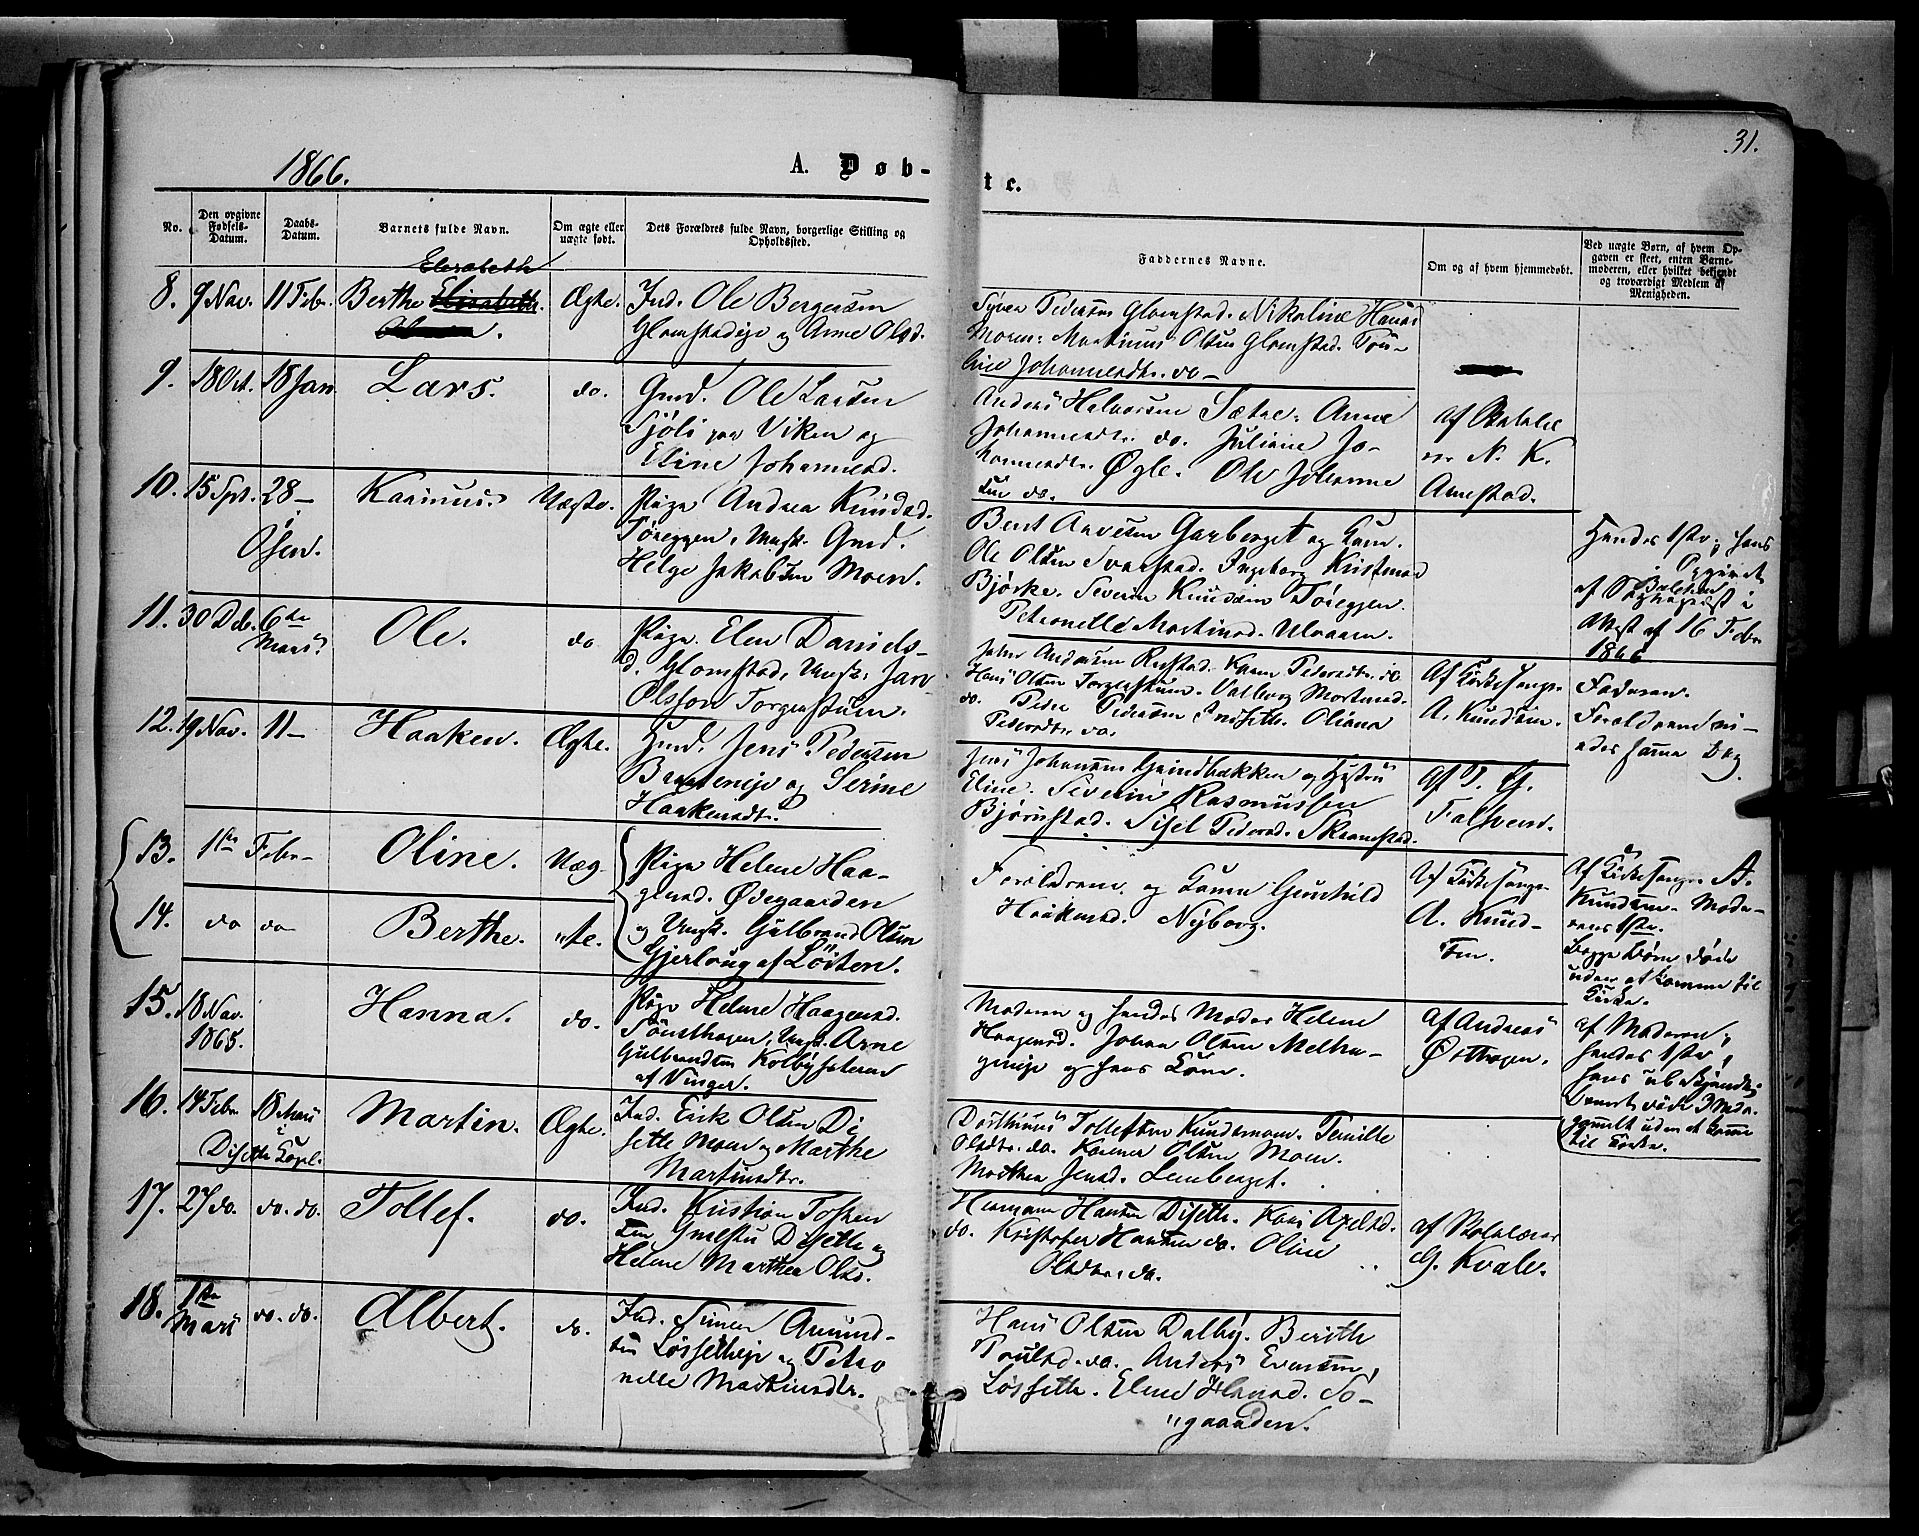 31.
1866.
A. Døb-
te.
No.
Den opgivne Fødsels-Datum.
Daabs-Datum.
Barnets fulde Navn.
Om ægte eller uægte født.
Dets Forældres fulde Navn, borgerlige Stilling og Opholdssted.
Faddernes Navne.
Om og af hvem hjemmedøbt.
Ved uægte Børn, af hvem Op-
gaven er skeet, enten Barne-
moderen, eller hvilket bekjendt
og troværdigt Medlem af
Menigheden.
Elisabeth
8. 9 Nov. 11 Febr. Berthe Elisabeth. Ægte. Ind. Ole Bergersen
Glomstadeje og Anne Olsd.
Pedersen Glomstad. Nikoline Hans
Moen. Martinus Olsen Glomstad.
Johannesdtr. do
9. 18 Oct. 18 Jan. Lars. do. Gmd. Ole Larsen
Sjøli paa Viken og
Eline Johannesd.
Anders Halvorsen Sætre. Anne
Johannesdtr. do. Juliane Jo-
hannesdtr. Øgle. Ole Johanne
sen do.
af Skolelæ
rer N. K.
Arnestad.
10. 15 Spt. 28 Uægte. Pige Andrea Knudsd.
Osen.
Tøreggen, Ungk. Gmd.
Helge Jakobsen Moen.
Bent Arvesen Garberget og Kone.
Ole Olsen Ingeborg Kristiansd
Bjørke. Severin Knudsen Tøreggen.
Petronelle Martinsd. Ulvaaen.
Hendes 1ste, hans
Opgivet
af i
Attest af 16 Febr
1866
11. 30 Deb. 6te Marts Ole. do Pige Elen Daniels-
d. Glomstad, Ungk. Jan
Olsson Torgenstuen.
Andersen Rustad. Karen Pedersdtr. do
Hans Olsen Valborg Mortensd.
do. Peder Pedersen Oliana
Pedersdtr. do.
Af Kirkesanger
A. Knudsen.
Faderen.
Forældrene vi-
edes samme Dag
12. 19 Nov. 11 Haaken. Ægte. Gmd. Jens Pedersen
og Serine
Haakensdtr.
Jens Johansen Grindbækken og Hustru
Eline. Severin Rasmussen
Bjørnstad. Sisel Pedersd. Skramstad.
Af T. G.
13. 1ste Febr Oline. Uæg- Pige Helene Haa-
gensd. Ødegaarden
14. do do Berthe. te. og Ungk. Gulbrand Olsen
Gjerlaug af Løiten.
Forældrene og Karen Gunhild
Haakensd. Nyborg.
Af Kirkesanger
A. Knud-
sen.
Af Kirkesanger A.
Knudsen. Mode-
rens 1ste.
Begge Børn døde
uden at komme til
Kirke.
15. 18 Nov. 1865. Hanna. do. Pige Helene Haagensd.
Ungk. Arne
Gulbrandsen
af Vinger.
Moderen og hendes Moder Helene
Haagensd. Johan Olsen Melha-
geneje og hans Kone.
af Andreas
Østhagen.
af Moderen,
hendes 1ste,
hans
Barnet døde 3 Mdr.
gammelt uden at komme
til Kirke.
16. 14 Febr 18 Marts i Martin. Ægte. Ind. Erik Olsen Di
Diseths Capel.
sette Moen og Marthe
Martinsdtr.
Tollefsen Kundemoen. Pernille
Olsdtr. do. Olsen Moen.
Marthea Jensd. Lemberget.
17. 27 do. do. do. Tollef. do. Ind. Kristian Tollef
sen Diseth og
Helene Marthea Olsd.
Hermann Hansen Diseth. Kari Axelsd.
do. Kristofer Hansen do. Oline
Olsdtr. do.
af Skolelærer
G. Kvale.
18. 1ste Marts do. do. Albert. do. Ind. Simen Amund-
sen Løssetheje og Petro
nelle Martinsdtr.
Hans Olsen Dalby. Berith
Poulsd. do. Anders Evensen,
Løsseth. Eline Hansd. So-
gaarden.